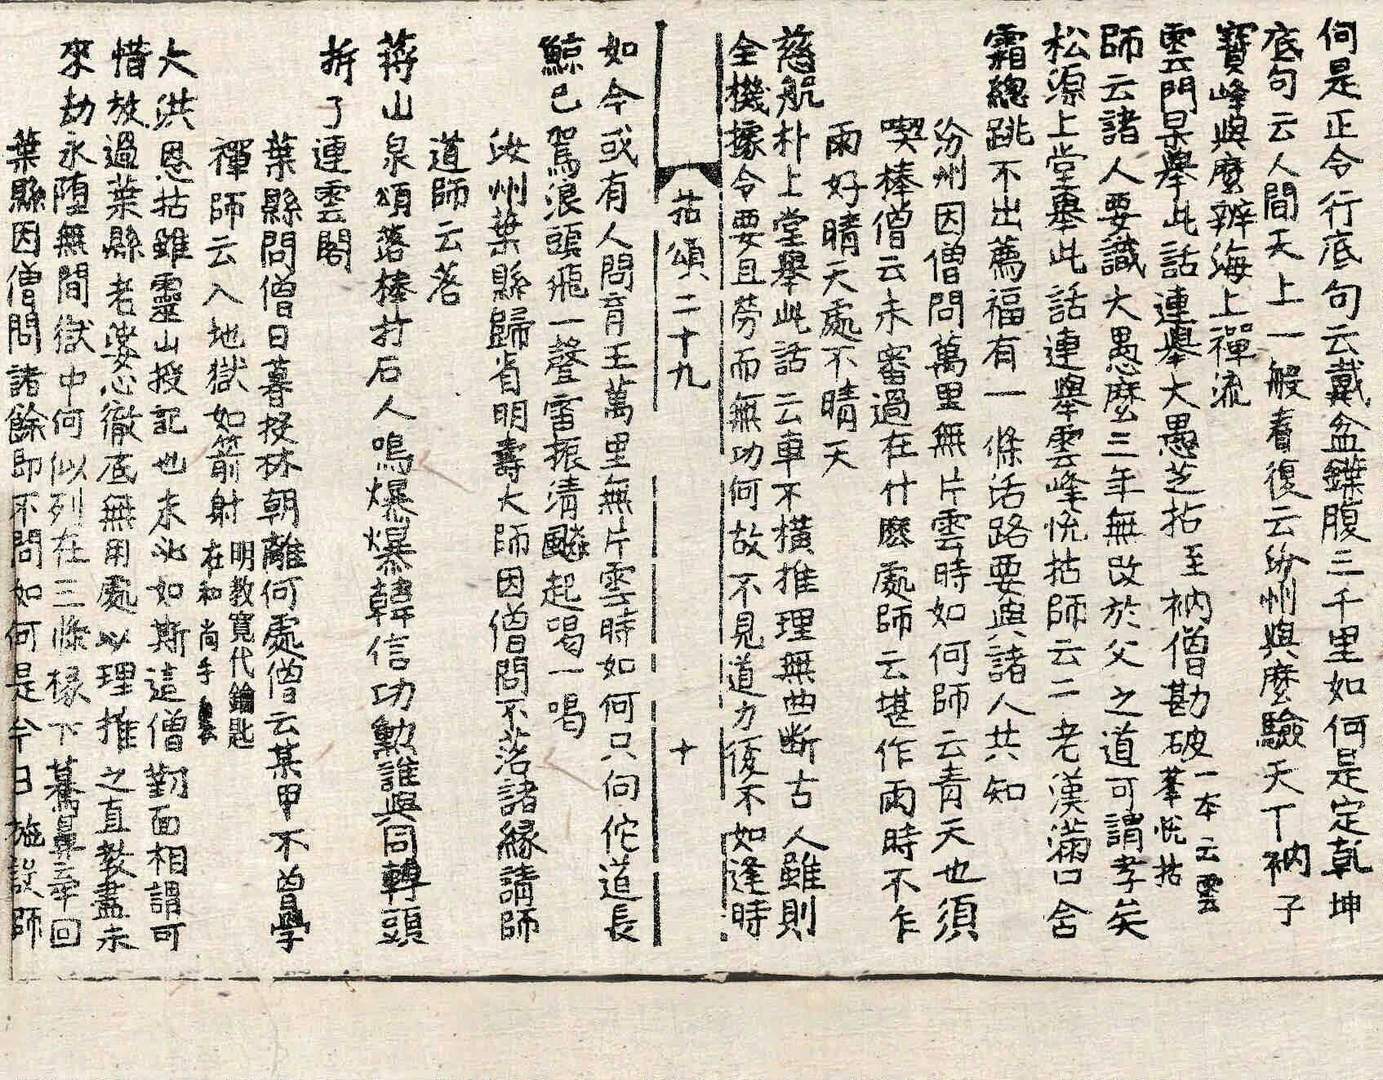 何是正令行底句云戴盆鏷腹三千里如何是定乾坤
底句云人間天上一般春復云汾州與麼驗天下衲子
寶峰與麼辨海上禪流
雲門杲舉此話連舉大愚芝拈至衲僧勘破一本云雲峯悅拈
師云諸人要識大愚麼三年無改於父之道可謂孝矣
松源上堂舉此話連舉雲峰悅拈師云二老漢滿口含
霜總跳不出薦福有一條活路要與諸人共知
汾州因僧問萬里無片雲時如何師云青天也須
喫棒僧云未審過在什麼處師云堪作雨時不作
雨好晴天處不晴天
慈航朴上堂舉此話云車不橫推理無曲斷古人雖則
全機據令要且勞而無功何故不見道力後不如逢時
拈頌二十九 十
如今或有人問育王萬里無片雲時如何只向佗道長
鯨已駕浪頭飛一聲雷振清飇起喝一喝
汝州葉縣歸省明壽大師因僧問不落諸緣請師
道師云落
蔣山泉頌落棒打石人鳴爆爆韓信功勳誰與同轉頭
拆了連雲閣
葉縣問僧日暮投林朝離何處僧云某甲不曾學
禪師云入地獄如箭射明教寬代鑰匙在和尚手裏
大洪恩拈雖靈山授記也未必如斯這僧對面相謂可
惜放過葉縣老婆心徹底無用處以理推之直教盡未
來劫永墮無間獄中何似列在三條椽下驀鼻牽回
葉縣因僧問諸餘即不問如何是今日施設師